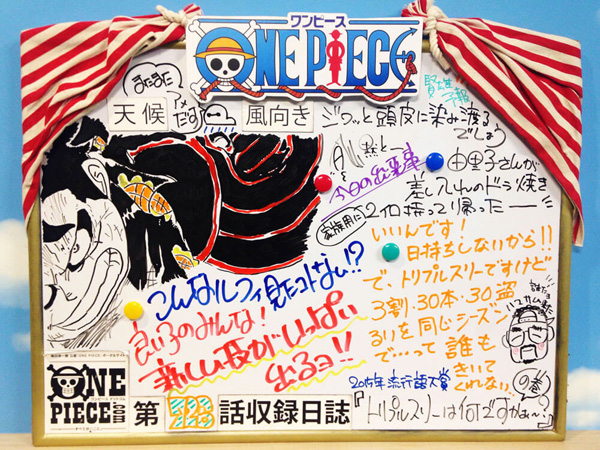 ワンピース
ONE PIECE
まだまだ
天候
アメ
だす
風向き
ジワッと頭皮に染み渡る
でしょう
予報
今日の出来事
由里子さんが
差し入れのドラ焼き
家族用に
2コ持って帰ったーー
いいんです!
日持ちしないから!!
で、トリプルスリーですけど
3割・30本・30盗
るいを同じシーズン
で…って誰も
きいて
くれない…
の巻
こんなルフィ見たコトない!?
良い子のみんな!
新しい技がいっぱい
出るヨ!!
2015年流行語大賞
『トリプルスリーは何ですかぁ〜?』
ONE
PIECE.com
ワンピース ドットコム
第
話収録日誌